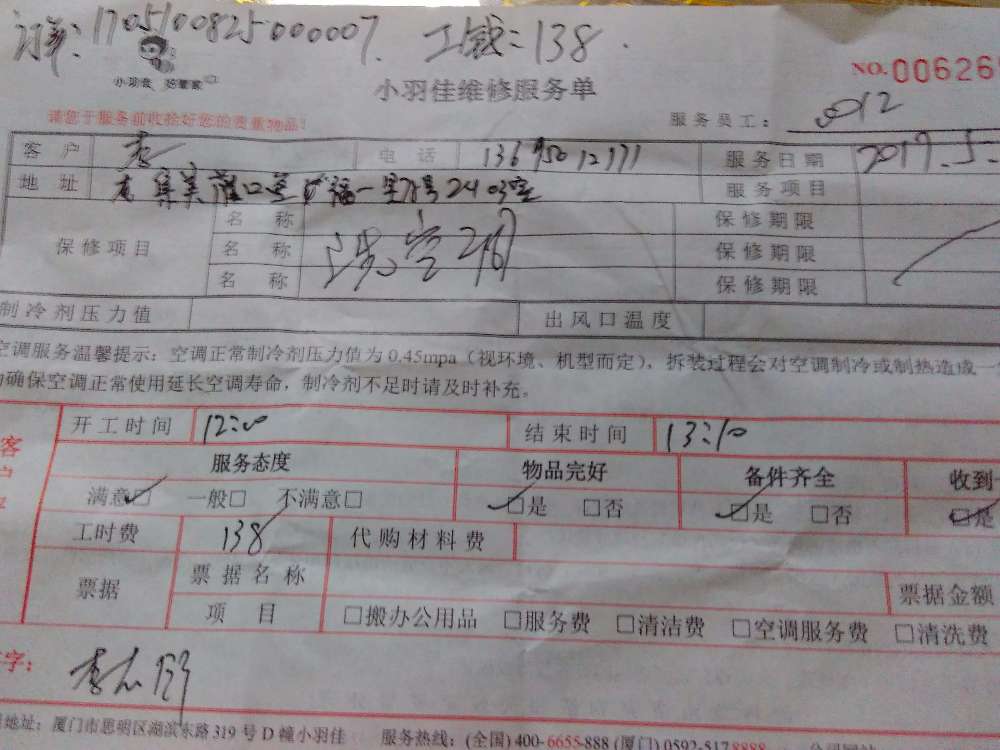 订单:1705100825000007. 工钱:138.
小羽佳 好管家
小羽佳维修服务单
NO.006265
请您于服务前收捡好您的贵重物品!
服务员工:
客 户 李 电 话 服务日期 2017.5.
地 址 集美 2403室 服务项目
保修项目 名 称 洗空调 保修期限
名 称 保修期限
名 称 保修期限
制冷剂压力值 出风口温度
空调服务温馨提示:空调正常制冷剂压力值为0.45mpa(视环境、机型而定),拆装过程会对空调制冷或制热造成一
确保空调正常使用延长空调寿命,制冷剂不足时请及时补充。
开工时间 12:00 结束时间 13:10
客户
服务态度 物品完好 备件齐全 收到
满意□ 一般□ 不满意□ □是 □否 □是 □否 □是
工时费 138 代购材料费
票据 票据名称 票据金额
项 目 □搬办公用品 □服务费 □清洁费 □空调服务费 □清洗费
字: 李
地址:厦门市思明区湖滨东路319号D幢小羽佳 服务热线:(全国)400-6655-888 (厦门)0592-5178888